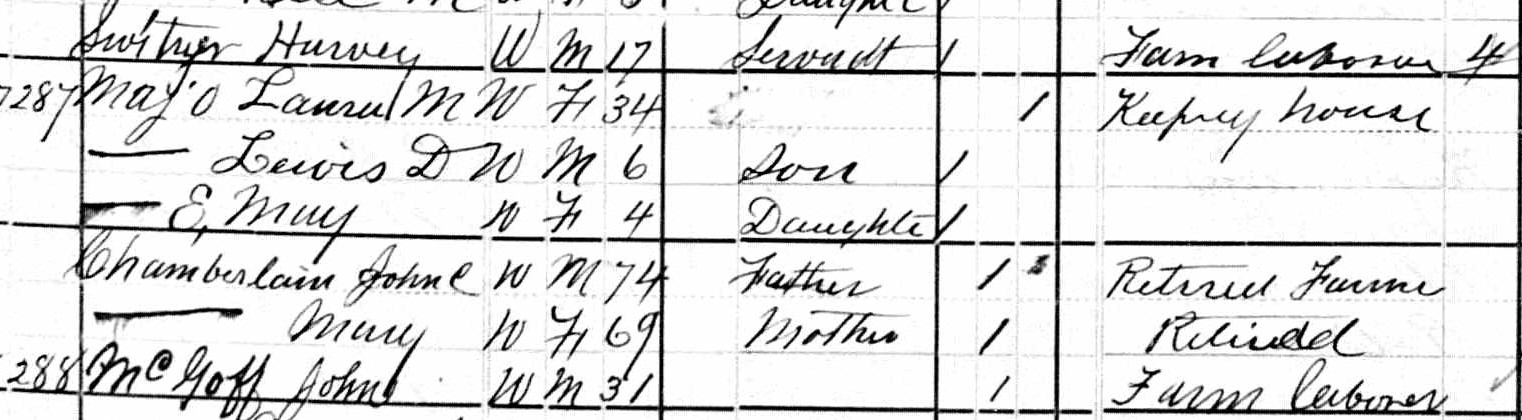 Harvey W M 17 Servant 1 Farm laborer 4
287 Majo Laura M W F 34 1 Keepng house
— Lewis D W M 6 Son 1
— E, May W F 4 Daughte 1
Chamberlain John C W M 74 Father 1 Retired Farme
— Mary W F 69 Mother 1
288 McGoff John W M 31 1 Farm laborer